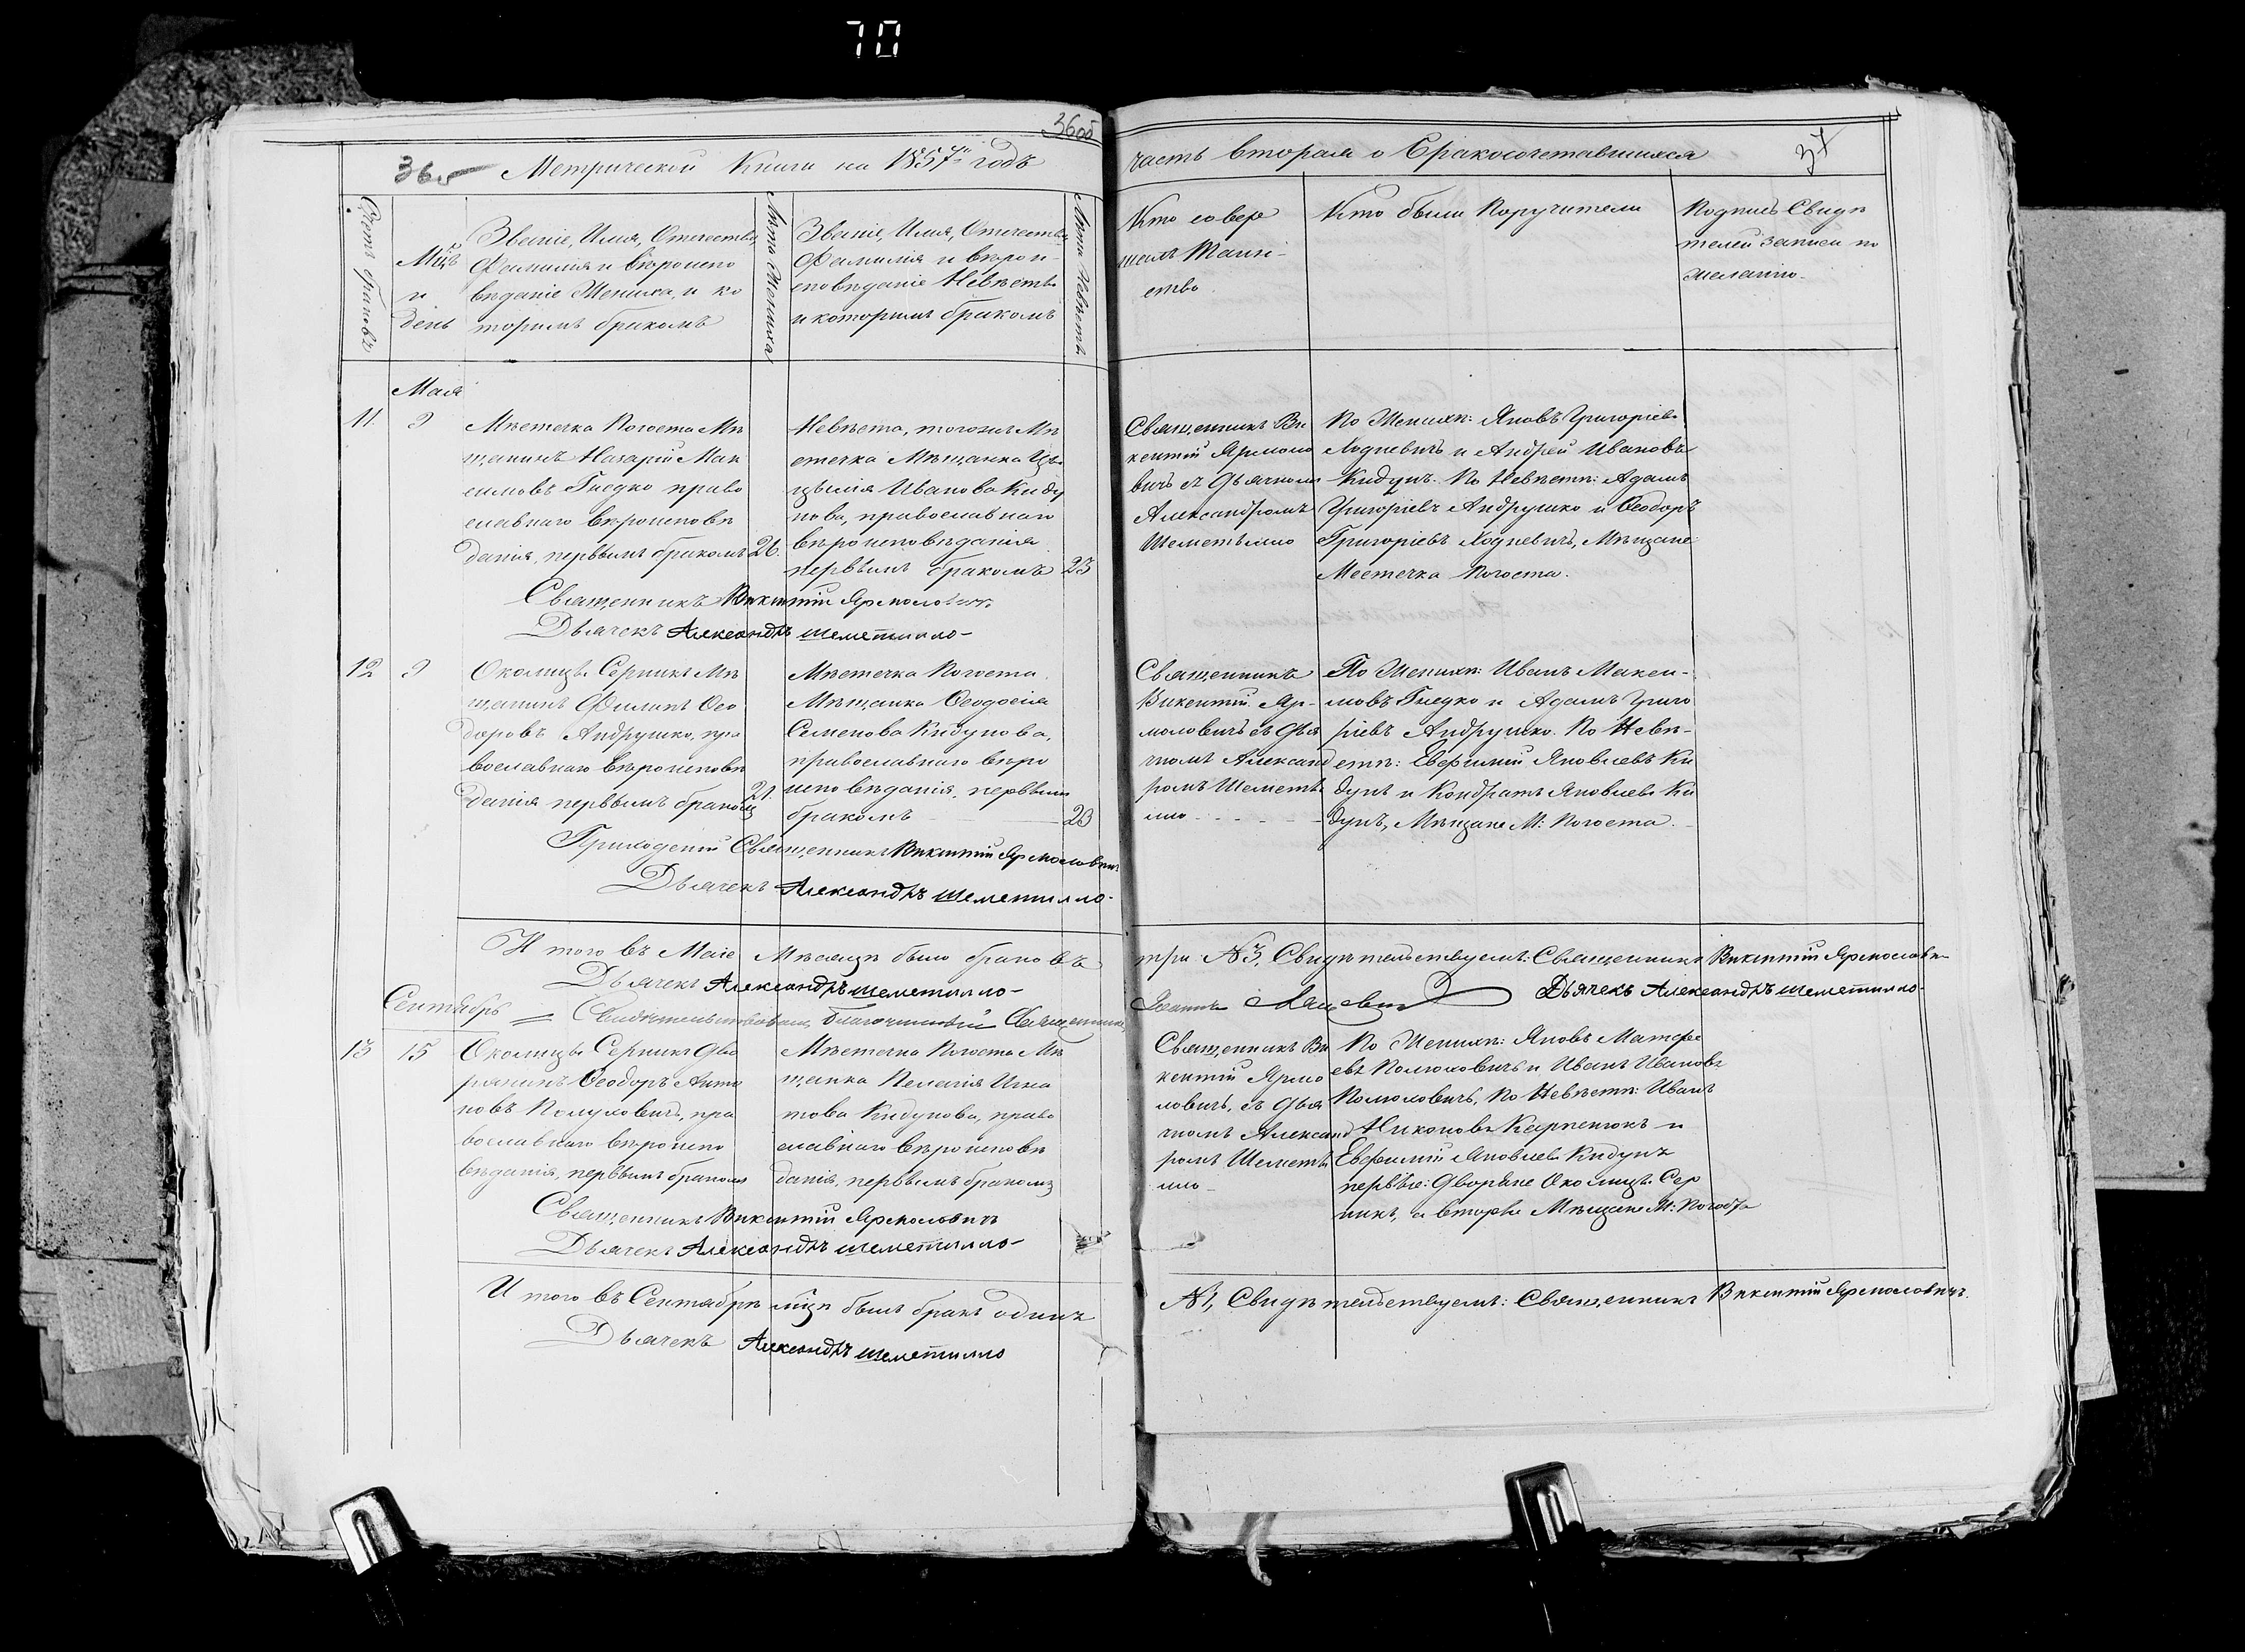 70
36об
36 Метрической Книги на 1857й годъ
часть вторая о Бракосочетавшихся
37
Счетъ браковъ
Мцъ
и
день
Званіе, Имя, Отечество,
Фамилія и вѣроиспо
вѣданіе Жениха, и ко
торымъ бракомъ
Лѣта Жениха
Званіе, Имя, Отечество
Фамилія и вѣрои-
сповѣданіе Невѣсты
и которымъ бракомъ
Лѣта Невѣсты
Кто совер
шалъ Таин-
ство
Кто были Поручители
Подпись Свидѣ
телей записи по
желанію
Мая
11. 9
Мѣстечка Погоста Мѣ
щанинъ Назарій Мак
симовъ Гнедко право
славнаго вѣроисповѣ
данія, первымъ бракомъ
Невѣста, тогожъ Мѣ
стечка Мѣщанка
Иванова Киду
нова, православнаго
вѣроисповѣданія
первымъ бракомъ 23
Священникъ Ви
кентій Ярмоло
вичъ съ Дьячкомъ
Александромъ
Шеметилло
По Женихѣ: Яковъ Григоріевъ
Ходневичъ и Андрей Ивановъ
Кидунъ. По Невѣстѣ: Адамъ
Григоріевъ Андрушко и Ѳеодоръ
Григоріевъ Ходневичъ, Мѣщане
Местечка Погоста.
Священникъ Викентій Ярмоловичъ
Дьячекъ Александръ Шеметилло-
12 9
Околицы Серникъ Мѣ
щанинъ Филипъ Ѳео
доровъ Андрушко, пра
вославнаго вѣроисповѣ
данія первымъ бракомъ
21.
Мѣстечка Погоста
Мѣщанка Ѳеодосія
Семенова Кидунова,
православнаго вѣро
исповѣданія, первымъ
бракомъ 23
Священникъ
Викентій Яр-
моловичъ съ Дья
чкомъ Александ
ромъ Шемети
лло
По Женихѣ: Иванъ Макси-
мовъ Гнедко и Адамъ Григо
ріевъ Андрушко. По Невѣ-
стѣ: Евфимій Яковлевъ Ки
дунъ и Кондратъ Яковлевъ Ки
дунъ, Мѣщане М: Погоста.
Приходскій Священникъ Викентій Ярмоловичъ
Дьячекъ Александръ Шеметилло-
И того въ Маіе Мѣсяцѣ было браковъ
три №3, Свидѣтельствуемъ: Священникъ Викентій Ярмоловичъ
Дьячекъ Александръ Шеметилло-
Дьячекъ Александръ Шеметилло-
Сентябрь
Благочинный Священникъ
13 15
Околицы Серникъ Дво
рянинъ Ѳеодоръ Анто
новъ Полуховичъ, пра
вославнаго вѣроиспо
вѣданія, первымъ бракомъ
Мѣстечка Погоста Мѣ
щанка Пелагія Игна
това Кидунова, право
славнаго вѣроисповѣ
данія, первымъ бракомъ
Священникъ Ви
кентій Ярмо
ловичъ, съ Дья
чкомъ Александ
ромъ Шемети
лло
По Женихѣ: Яковъ Матфе
евъ Полюховичъ и Иванъ Ивановъ
Полюховичъ, По Невѣстѣ: Иванъ
Никоновъ Карпенюкъ и
Евфимій Яковлевъ Кидунъ
первые: Дворяне Околицы Сер
никъ, а вторые Мѣщане М: Погоста
Священникъ Викентій Ярмоловичъ
Дьячекъ Александръ Шеметилло-
И того въ Сентябрѣ мцѣ былъ бракъ одинъ
№1, Свидѣтельствуемъ: Священникъ Викентій Ярмоловичъ.
Дьячекъ Александръ Шеметилло